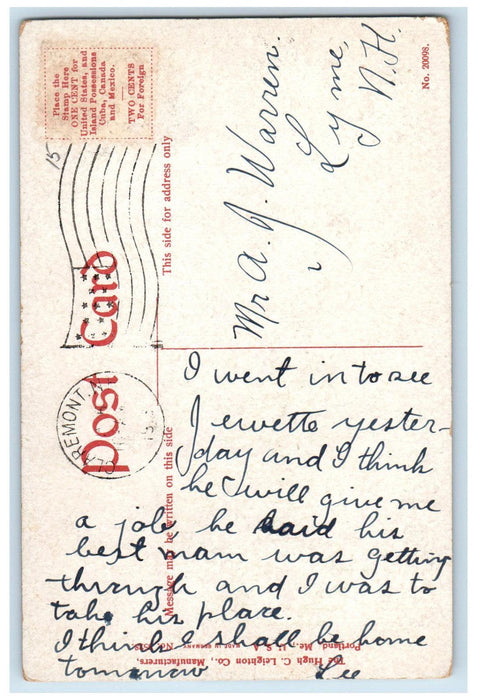 Place the
Stamp Here
ONE CENT for
United States, and
Island Possessions
Cuba, Canada
and Mexico.
TWO CENTS
For Foreign
15
Post Card
This side for address only
Mr A. J. Warren.
Lyme,
N.H.
No. 20098.
CLAREMONT, N
Message may be written on this side
I went in to see
Jewette yester-
day and I think
he will give me
a job he said his
best mam was getting
through and I was to
take his place.
I think I shall be home
tomorrow Lee
The Hugh C. Leighton Co., Manufacturers,
Portland, Me., U. S. A.
MADE IN GERMANY
No.